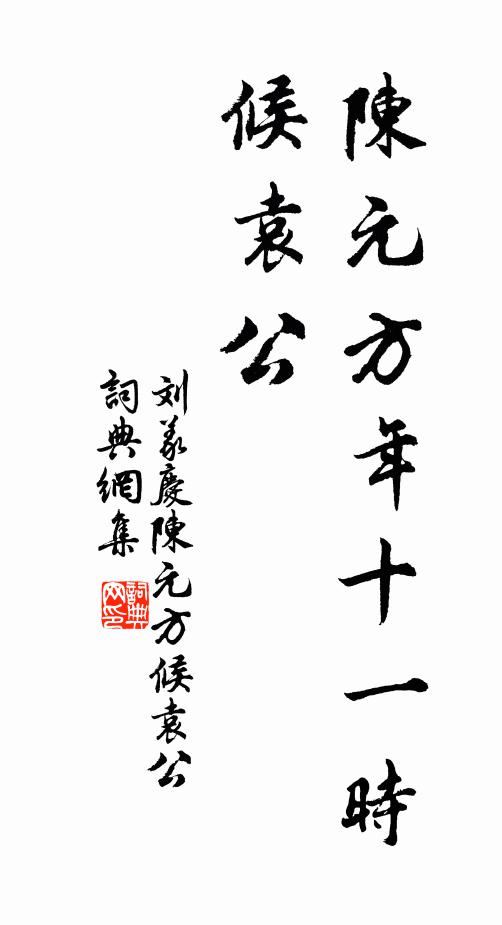 陳元方年十一時
候袁公
刘義慶陳元方候袁公
詞典網集
詞典网印